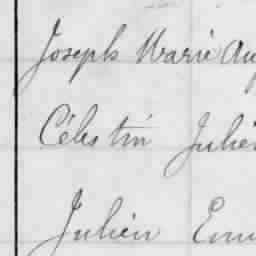 Joseph Marie Aug
Célestin Julien
Julien Emi